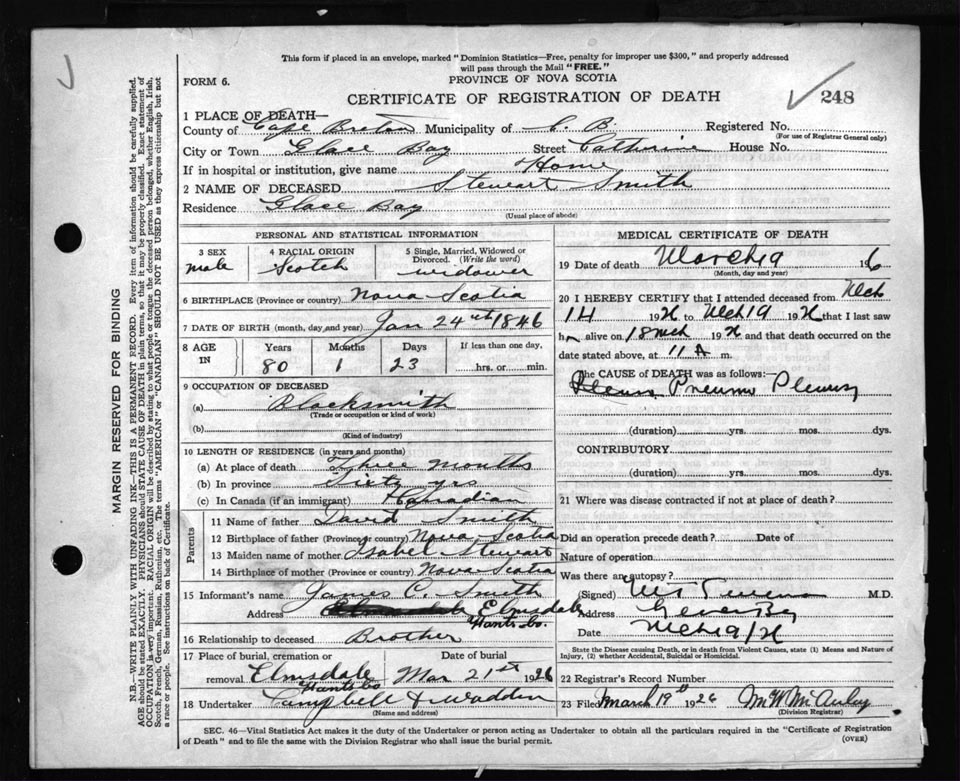 This form if placed in an envelope, marked "Dominion Statistics—Free, penalty for improper use $300," and properly addressed
will pass through the Mail "FREE."
FORM 6.
PROVINCE OF NOVA SCOTIA
CERTIFICATE OF REGISTRATION OF DEATH
248
1 PLACE OF DEATH—
County of Cape Breton Municipality of C. B. Registered No.
(For use of Registrar General only)
City or Town Glace Bay Street Catherine House No.
If in hospital or institution, give name Home
2 NAME OF DECEASED Stewart Smith
Residence Glace Bay
(Usual place of abode)
PERSONAL AND STATISTICAL INFORMATION
3 SEX 4 RACIAL ORIGIN 5 Single, Married, Widowed or Divorced. (Write the word)
male Scotch widower
6 BIRTHPLACE (Province or country) Nova Scotia
7 DATE OF BIRTH (month, day and year) Jan 24th 1846
8 AGE IN Years Months Days If less than one day,
80 1 23 hrs. or min.
9 OCCUPATION OF DECEASED
(a) Blacksmith
(Trade or occupation or kind of work)
(b)
(Kind of industry)
10 LENGTH OF RESIDENCE (in years and months)
(a) At place of death Three months
(b) In province Sixty yrs
(c) In Canada (if an immigrant) Canadian
Parents
11 Name of father David Smith
12 Birthplace of father (Province or country) Nova Scotia
13 Maiden name of mother Isabel Stewart
14 Birthplace of mother (Province or country) Nova Scotia
15 Informant's name James C. Smith
Address Elmsdale
Hants Co.
16 Relationship to deceased Brother
17 Place of burial, cremation or removal Date of burial
Elmsdale Mar 21st 1926
Hants Co
18 Undertaker Campbell & Wadden
(Name and address)
MEDICAL CERTIFICATE OF DEATH
19 Date of death March 19 1926
(Month, day and year)
20 I HEREBY CERTIFY that I attended deceased from Mch
14 192 to Mch 19 192 that I last saw
h alive on 18 Mch 192 and that death occurred on
date stated above, at 11 A m.
The CAUSE OF DEATH was as follows:—
Pneumo Pleurisy
(duration) yrs. mos. dys.
CONTRIBUTORY:
(duration) yrs. mos. dys.
21 Where was disease contracted if not at place of death?
Did an operation precede death? Date of
Nature of operation
Was there an autopsy?
(Signed) M.D.
Address Glace Bay
Date Mch 19/
State the Disease causing Death, or in death from Violent Causes, state (1) Means and Nature of
Injury, (2) whether Accidental, Suicidal or Homicidal.
22 Registrar's Record Number
23 Filed March 19th 1926 M W McAulay
(Division Registrar)
SEC. 46—Vital Statistics Act makes it the duty of the Undertaker or person acting as Undertaker to obtain all the particulars required in the "Certificate of Registration
of Death" and to file the same with the Division Registrar who shall issue the burial permit. (OVER)
MARGIN RESERVED FOR BINDING
N.B.—WRITE PLAINLY WITH UNFADING INK—THIS IS A PERMANENT RECORD. Every item of information should be carefully supplied.
AGE should be stated EXACTLY. PHYSICIANS should STATE CAUSE OF DEATH in plain terms, so that it may be properly classified. Exact statement of
OCCUPATION is very important. RACIAL ORIGIN will be described by stating to what people or tongue the deceased person belonged, whether English, Irish,
Scotch, French, German, Russian, Ruthenian, etc. The terms "AMERICAN" or "CANADIAN" SHOULD NOT BE USED as they express citizenship but not
a race or people. See instructions on back of Certificate.